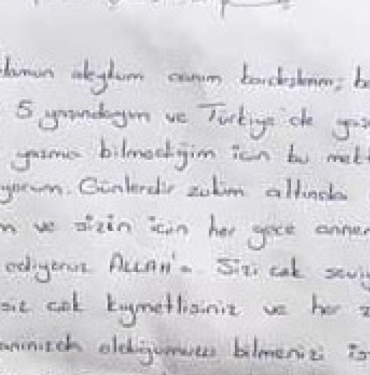 aleykum canım kardeşlerim;
5 yaşındayım ve Türkiye'de
yazma bilmediğim için bu
Günlerdir zulüm altında
ve sizin için her gece
ediyoruz ALLAH'a. Sizi çok
siz çok kıymetlisiniz ve her
olduğumuzu bilmenizi